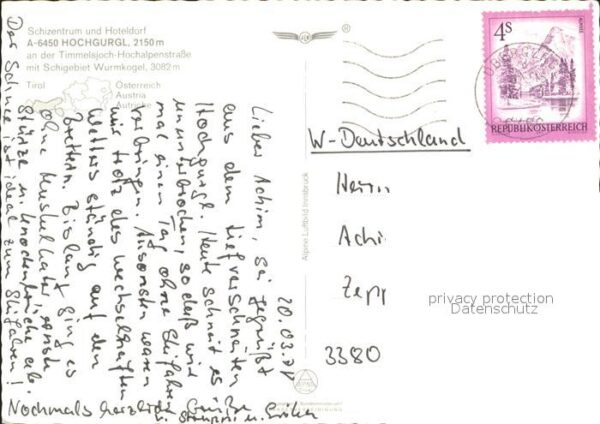 Schizentrum und Hoteldorf
A-6450 HOCHGURGL, 2150 m
an der Timmelsjoch-Hochalpenstraße
mit Schigebiet Wurmkogel, 3082 m
Tirol
Österreich
Austria
Autriche
4S
REPUBLIK ÖSTERREICH
Alpine Luftbild Innsbruck
20.03.78
Lieber Achim, sei gegrüßt
aus dem tiefverschneiten
Hochgurgl. Heute schneit es
ununterbrochen, so daß wir
mal einen Tag ohne Skifahren
verbringen. Ansonsten waren
wir trotz des wechselhaften
Wetters ständig auf den
Brettern. Bislang ging es
ohne Muskelkater, ernste
Stürze u. Knochenbrüche ab.
Der Schnee ist ideal zum Skifahren!
Nochmals herzliche Grüße
u. Erika
W-Deutschland
Herrn
Achi
Zepp
3380
privacy protection
Datenschutz